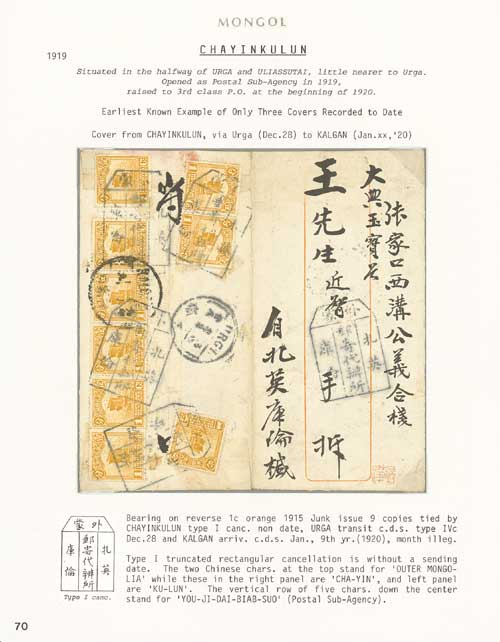 MONGOL
1919
CHAYINKULUN
Situated in the halfway of URGA and ULIASSUTAI, little nearer to Urga.
Opened as Postal Sub-Agency in 1919,
raised to 3rd class P.O. at the beginning of 1920.
Earliest Known Example of Only Three Covers Recorded to Date
Cover from CHAYINKULUN, via Urga (Dec.28) to KALGAN (Jan.xx,'20)
張家口西溝公義合棧
大典玉寶石
王先生近啓
手拆
自扎英庫倫緘
URGA
外蒙
扎英
郵寄代辦所
庫倫
Bearing on reverse 1c orange 1915 Junk issue 9 copies tied by
CHAYINKULUN type I canc. non date, URGA transit c.d.s. type IVc
Dec.28 and KALGAN arriv. c.d.s. Jan., 9th yr.(1920), month illeg.
Type I truncated rectangular cancellation is without a sending
date. The two Chinese chars. at the top stand for 'OUTER MONGO-
LIA' while these in the right panel are 'CHA-YIN', and left panel
are 'KU-LUN'. The vertical row of five chars. down the center
stand for 'YOU-JI-DAI-BIAB-SUO' (Postal Sub-Agency).
外蒙
扎英
郵寄代辦所
庫倫
Type I canc.
70